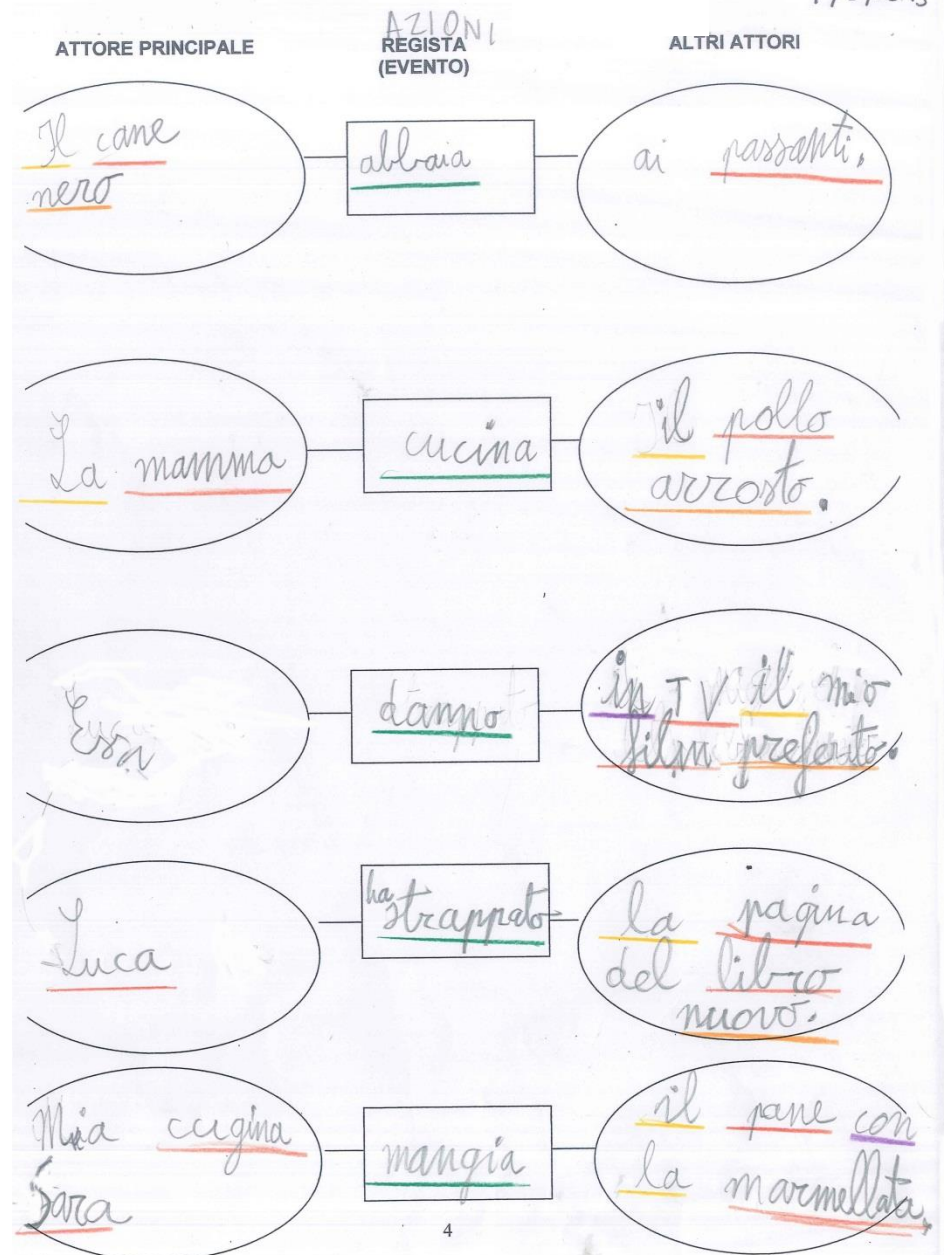 AZIONI
ATTORE PRINCIPALE REGISTA ALTRI ATTORI
(EVENTO)
Il cane abbaia ai passanti.
nero
La mamma cucina il pollo
arrosto.
Essi danno in TV il mio
film preferito.
Luca ha strappato la pagina
del libro
nuovo.
Mia cugina mangia il pane con
Sara la marmellata
4